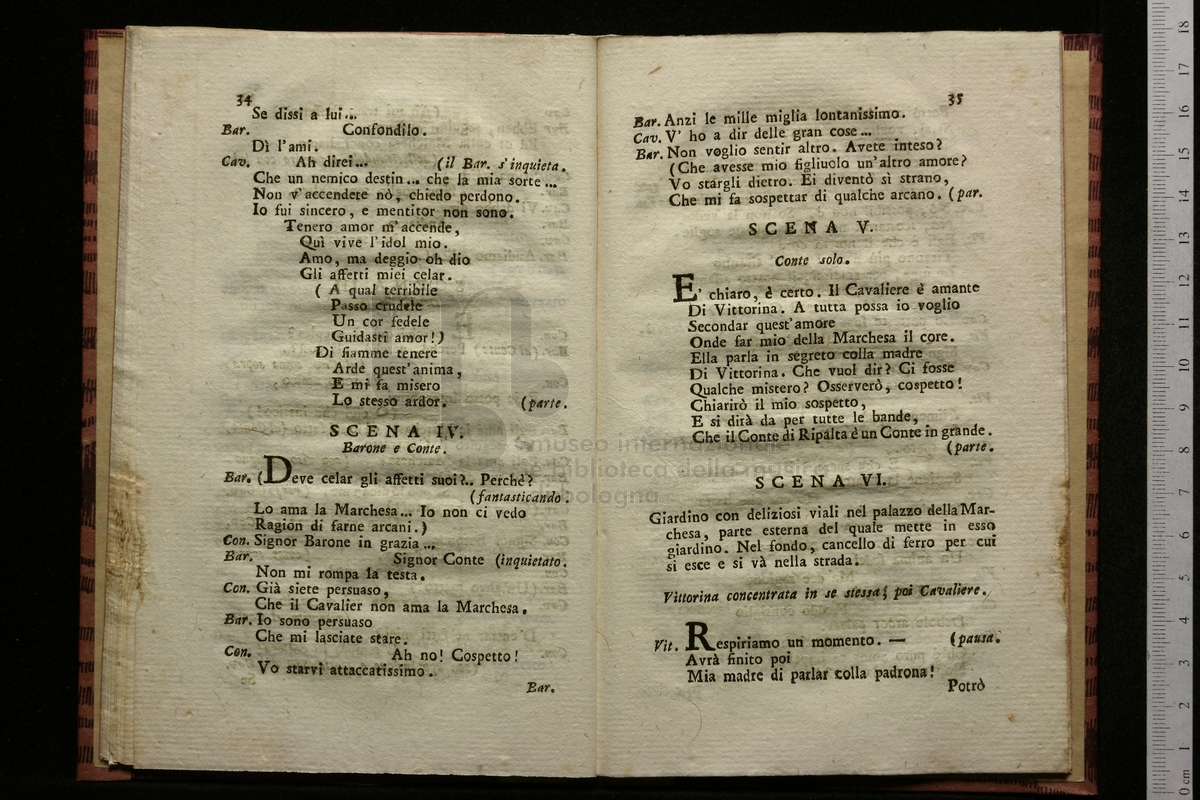 34
Se dissi a lui...
Bar. Confondilo.
Dì l'ami.
Cav. Ah direi... (il Bar. s'inquieta.
Che un nemico destin... che la mia sorte...
Non v'accendete nò, chiedo perdono.
Io fui sincero, e mentitor non sono.
Tenero amor m'accende,
Quì vive l'idol mio.
Amo, ma deggio oh dio
Gli affetti miei celar.
( A qual terribile
Passo crudele
Un cor fedele
Guidasti amor!)
Di fiamme tenere
Arde quest'anima,
E mi fa misero
Lo stesso ardor. (parte.
SCENA IV.
Barone e Conte.
Bar. (Deve celar gli affetti suoi?.. Perchè?
(fantasticando.
Lo ama la Marchesa... Io non ci vedo
Ragion di farne arcani.)
Con. Signor Barone in grazia...
Bar. Signor Conte (inquietato.
Non mi rompa la testa.
Con. Già siete persuaso,
Che il Cavalier non ama la Marchesa.
Bar. Io sono persuaso
Che mi lasciate stare.
Con. Ah no! Cospetto!
Vo starvi attaccatissimo.
Bar.
35
Bar. Anzi le mille miglia lontanissimo.
Cav. V' ho a dir delle gran cose...
Bar. Non voglio sentir altro. Avete inteso?
(Che avesse mio figliuolo un'altro amore?
Vo stargli dietro. Ei diventò sì strano,
Che mi fa sospettar di qualche arcano. (par.
SCENA V.
Conte solo.
E' chiaro, è certo. Il Cavaliere è amante
Di Vittorina. A tutta possa io voglio
Secondar quest'amore
Onde far mio della Marchesa il core.
Ella parla in segreto colla madre
Di Vittorina. Che vuol dir? Ci fosse
Qualche mistero? Osserverò, cospetto!
Chiarirò il mio sospetto,
E si dirà da per tutte le bande,
Che il Conte di Ripalta è un Conte in grande.
(parte.
SCENA VI.
Giardino con deliziosi viali nel palazzo della Mar-
chesa, parte esterna del quale mette in esso
giardino. Nel fondo, cancello di ferro per cui
si esce e si và nella strada.
Vittorina concentrata in se stessa; poi Cavaliere.
Vit. Respiriamo un momento. — (pausa.
Avrà finito poi
Mia madre di parlar colla padrona!
Potrò
museo internazionale
e biblioteca della musica
bologna
0 cm 1 2 3 4 5 6 7 8 9 10 11 12 13 14 15 16 17 18